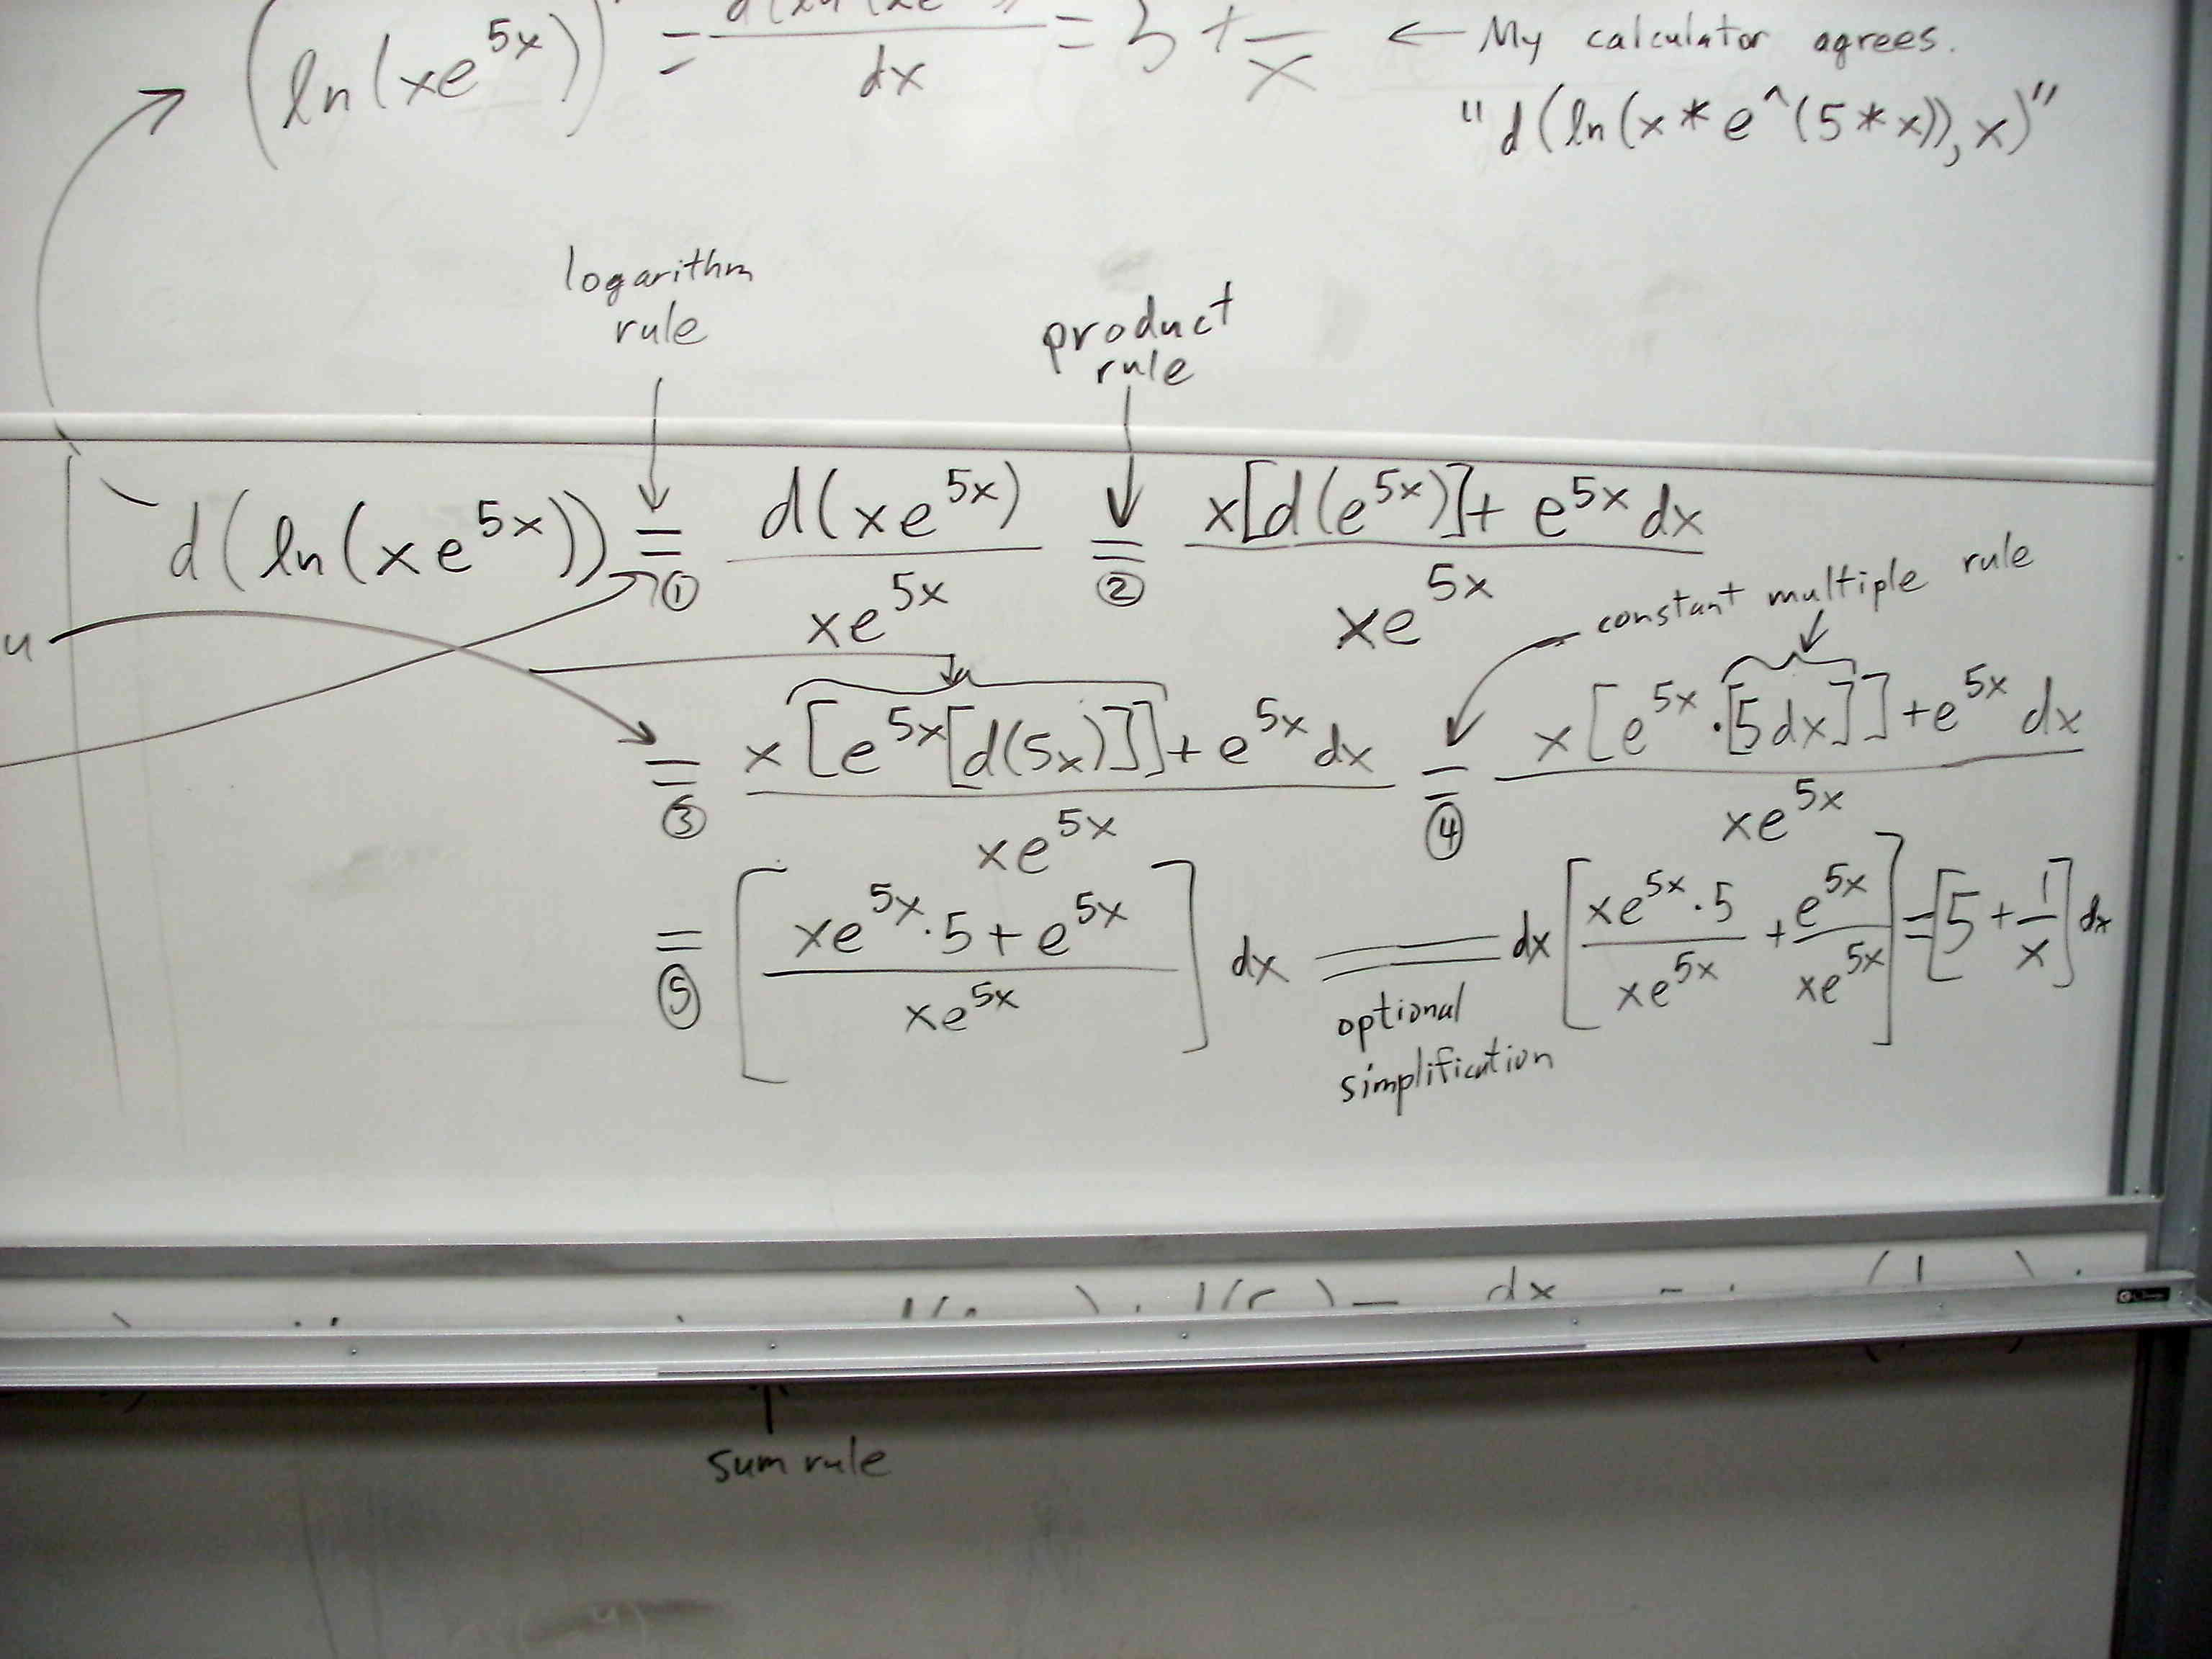 (ln(xe^5x))' = d(ln(xe / dx = 5 + — / x ← My calculator agrees.
"d(ln(x*e^(5*x)),x)"
logarithm
rule
product
rule
d(ln(xe^5x)) =① d(xe^5x) / xe^5x =② x[d(e^5x)] + e^5x dx / xe^5x
constant multiple rule
u
=③ x[e^5x[d(5x)]] + e^5x dx / xe^5x =④ x[e^5x · [5dx]] + e^5x dx / xe^5x
=⑤ [xe^5x · 5 + e^5x / xe^5x] dx = dx [xe^5x · 5 / xe^5x + e^5x / xe^5x] = [5 + 1/x] dx
optional
simplification
dx
sum rule